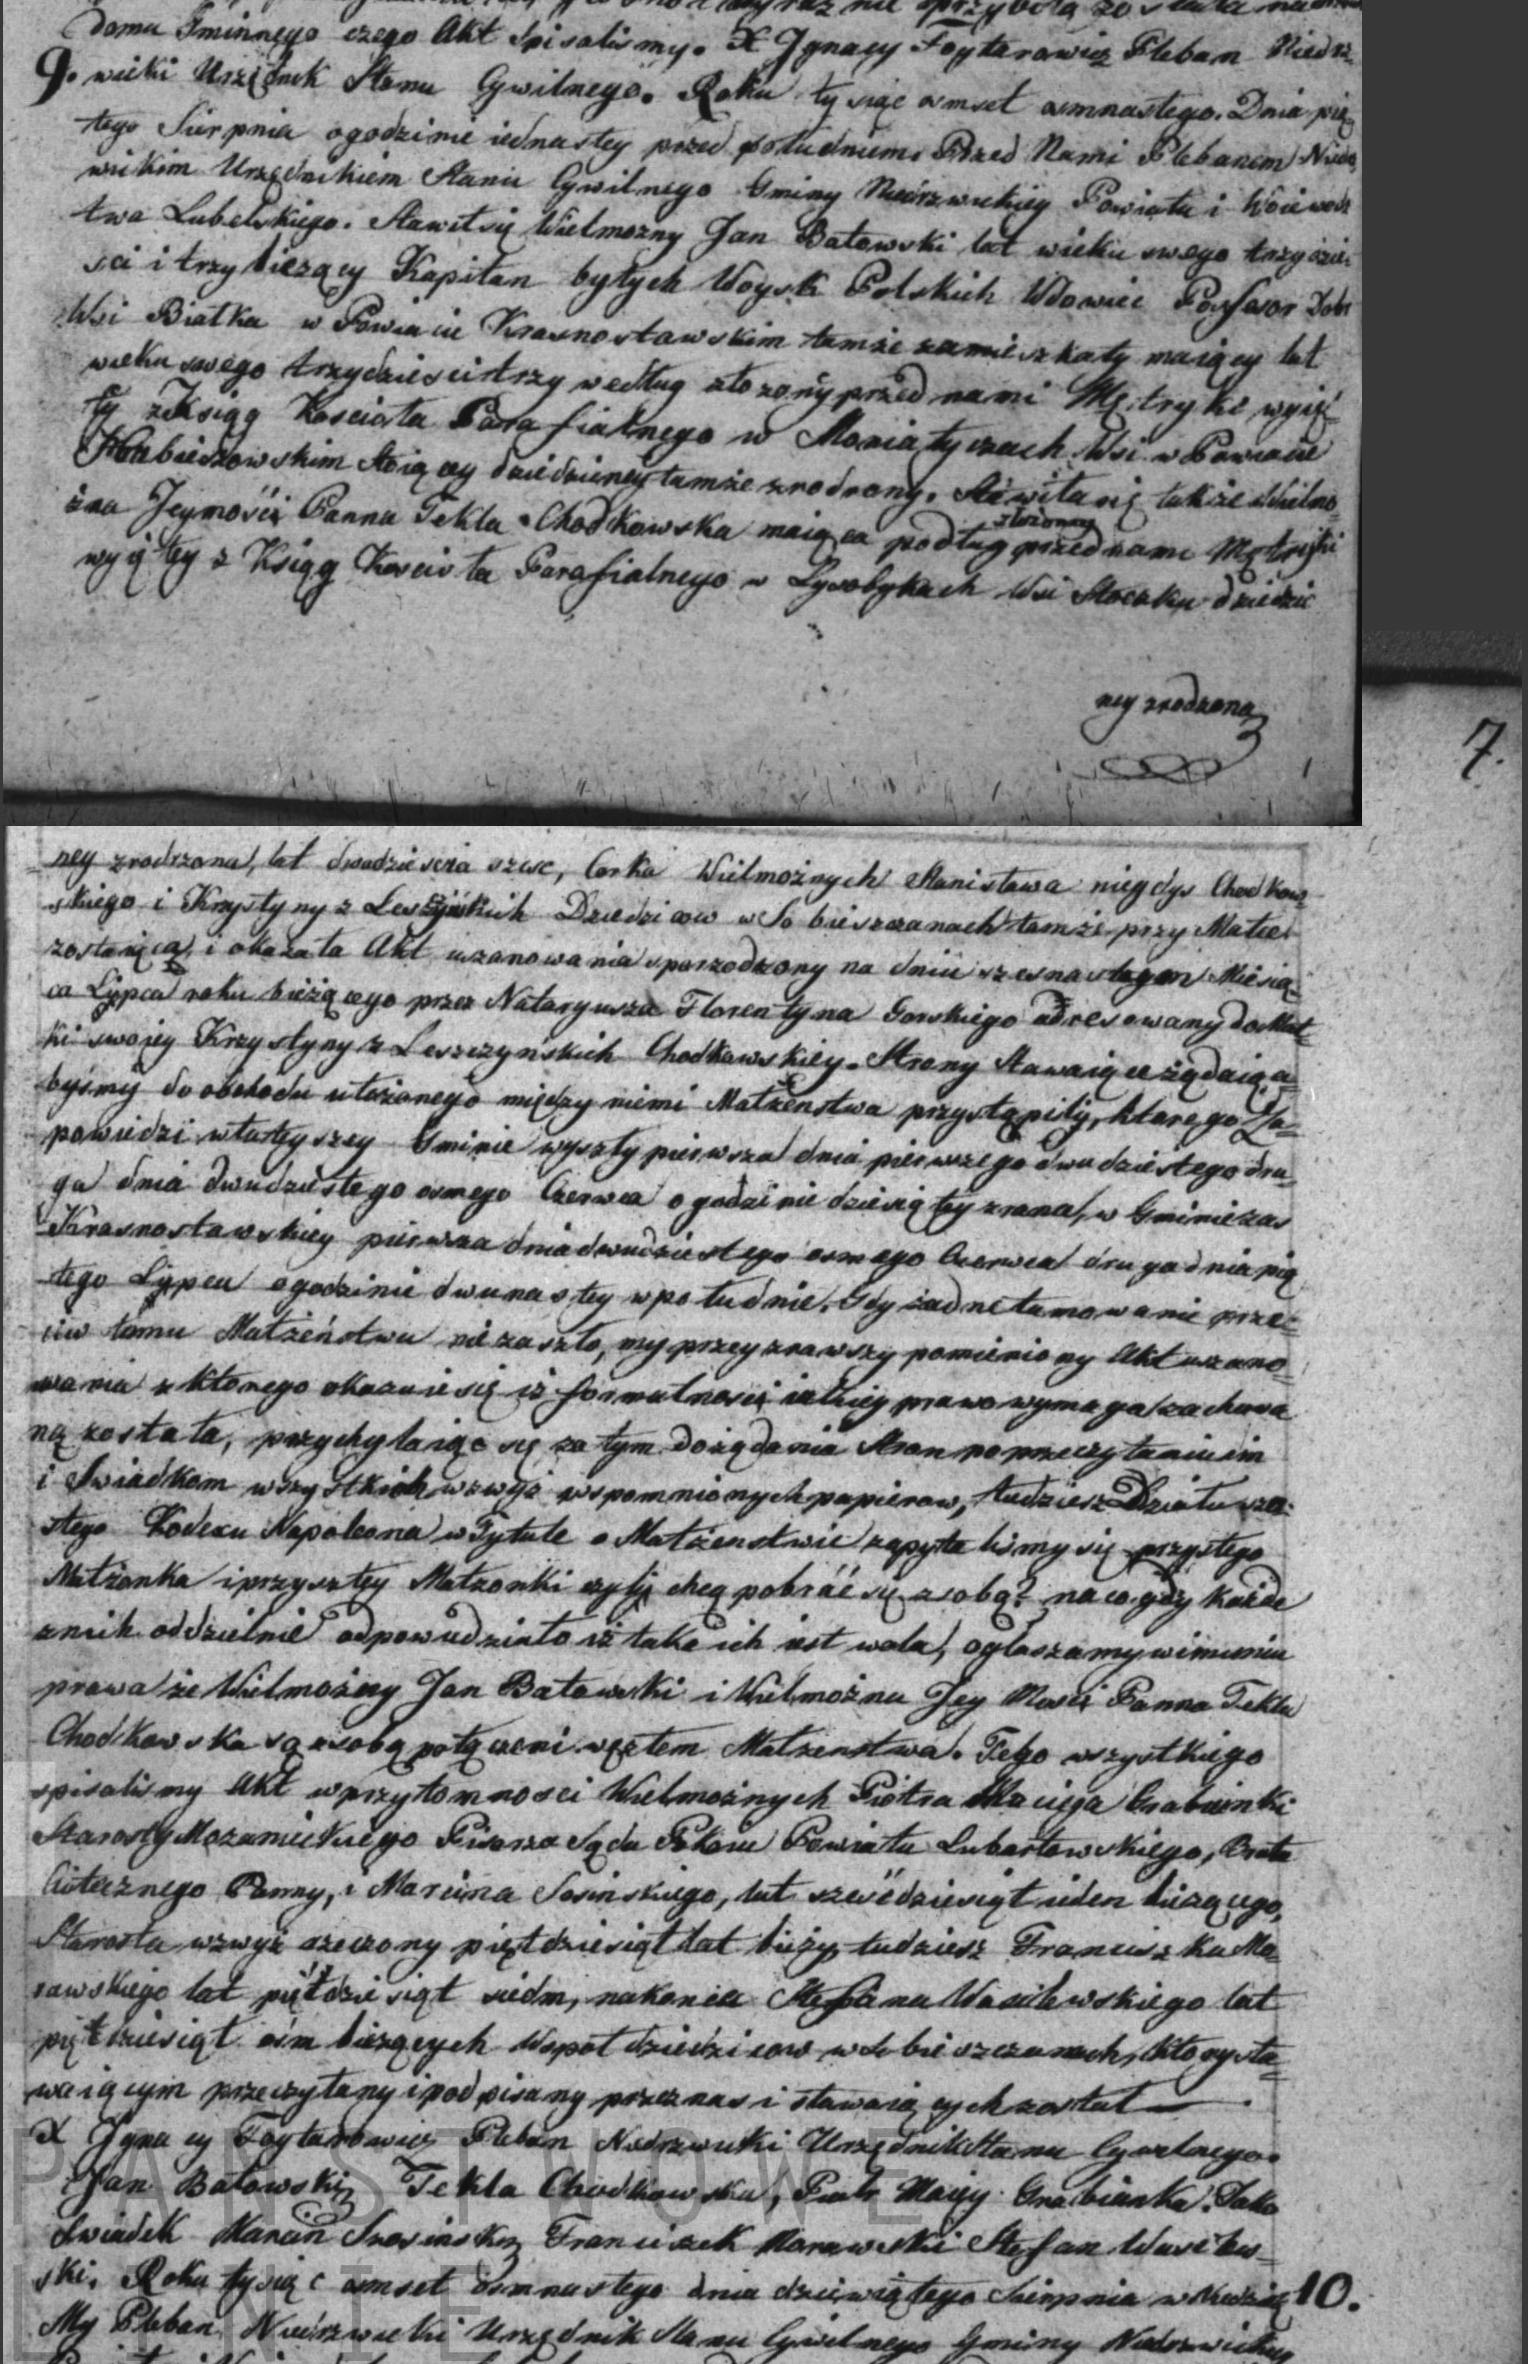 domu Gminnego czego Akt Spisalismy. X Jgnacy Foytarowicz Pleban Niedrz=
9. wicki Urzędnik Stanu Cywilnego. Roku tysiąc osmset osmnastego. Dnia pią
tego Sierpnia ogodzinie iednastey przed południem. Przed Nami Plebanem Niedrz
wickim Urzędnikiem Stanu Cywilnego Gminy Niedrzwickiey Powiatu i Woiewodz
twa Lubelskiego. Stawił się Wielmozny Jan Batowski lat wieku swego trzydzie=
sci i trzy liczący Kapitan byłych Woysk Polskich Wdowiec Possesor Dobr
Wsi Białka w Powiecie Krasnostawskim tamże zamieszkały maiący lat
wieku swego trzydziescitrzy według złożony przed nami Metryki wyię=
ty zKsiąg Kosciola Parafialnego w Moniatyczach Wsi w Powiecie
Hrubieszowskim stoiącey dziedziczney tamże zrodzony. Stawiła się także Wielmo
żna Jeymość Panna Tekla Chodkowska maiąca podług złożoney przednami Metryki
wyiętey z Ksiąg Kosciola Parafialnego w Łysobykach Wsi Stoczku dziedzic
ney zrodzona
7.
ney zrodzona, lat dwadziescia szesc, Corka Wielmożnych Stanisława niegdys Chodkow
skiego i Krystyny z Leszczyńskich Dziedzicow w Sobieszczanach tamże przy Matce
zostaiąca, i okazała Akt uzanowania sporządzony na dniu szesnastegom Miesią=
ca Lipca roku bieżącego przez Nataryusza Florentyna Gorskiego adresowany do Mat=
ki swoiey Krzystyny z Leszczyńskich Chodkowskiey. Strony Stawaiące żądaią a=
byśmy do obchodu ułożonego między niemi Małżenstwa przystąpili, ktorego Za=
powiedzi wtuteyszey Gminie wyszły pierwsza dnia pierwszego dwudziestego dru=
ga dnia dwudziestego osmego Czerwca ogodzinie dziesiątey zrana, w Gminie zas
Krasnostawskiey pierwsza dnia dwudziestego osmego Czerwca druga dnia pią
tego Lipca ogodzinie dwunastey wpołudnie. Gdy żadne tamowanie prze=
ciw temu Małżeństwu nie zaszło, my przeyrzawszy pomieniony Akt uzano=
wania z ktorego okazuie się iż formalnosci iakiey prawo wymaga zachowa
ną została, przychylaiąc się zatym dożądania Stron poprzeczytaniu im
i Swiadkom wszystkich wzwyż wspomnionych papierow, tudziesz Działu szo=
stego Kodexu Napoleona wTytule o Małżenstwie zapytalismy się przyszłego
Małżonka iprzyszłey Małżonki czyli chcą pobrać się zsobą? naco gdy każde
znich oddzielnie odpowiedziało iż taka ich iest wola, ogłaszamy wimieniu
prawa że Wielmożny Jan Batowski i Wielmożna Jey Mość Panna Tekla
Chodkowska są zsobą połączeni węzłem Małżenstwa. Tego wszystkiego
spisalismy Akt wprzytomnosci Wielmożnych Piotra Macieja Grabianki
Starosty Mozamickiego Pisarza Sądu Pokoiu Powiatu Lubartowskiego, Brata
Ciotecznego Panny, i Marcina Sosinskiego, lat szesćdziesiąt ieden liczącego,
Starosta wzwyż rzeczony pięćdziesiąt lat liczy, tudziesz Franciszka Mo=
rawskiego lat pięćdziesiąt siedm, nakoniec Stefana Wasilewskiego lat
pięćdziesiąt ośm liczących Wspołdziedzicow w Sobieszczanach, ktory sta=
waiącym przeczytany i podpisany przez nas i stawaiących został
X Jgnacy Foytarowicz Pleban Niedrzwicki Urzędnik Stanu Cywilnego.
Jan Batowski, Tekla Chodkowska, Piotr Maciey Grabianka. Jako
Swiadek Marcin Sosinski, Franciszek Morawski Stefan Wasilew=
ski. Roku tysiąc osmset osmnastego dnia dziewiątego Sierpnia w Niedrzwi 10.
My Pleban Niedrzwicki Urzędnik Stanu Cywilnego Gminy Niedrzwickiey
PAŃSTWOWE